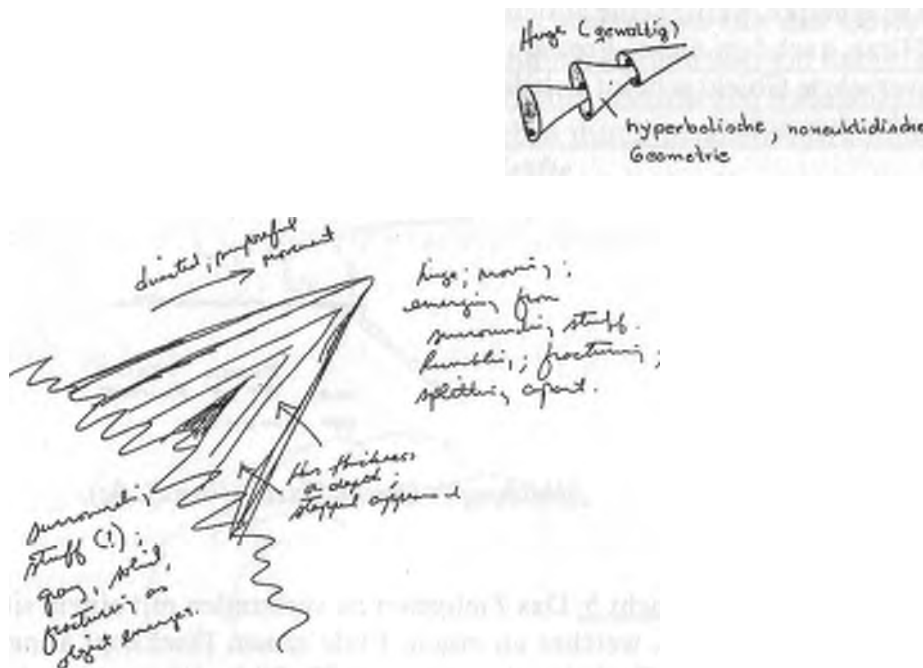 Huge (gewaltig)
hyperbolische, noneuklidische
Geometrie
directed, purposeful
movement
huge; moving;
emerging from
surrounding stuff.
rumbling; fracturing;
splitting apart.
has thickness
or depth;
stepped
surrounding
stuff (!);
gray, solid,
fracturing as
object emerges.